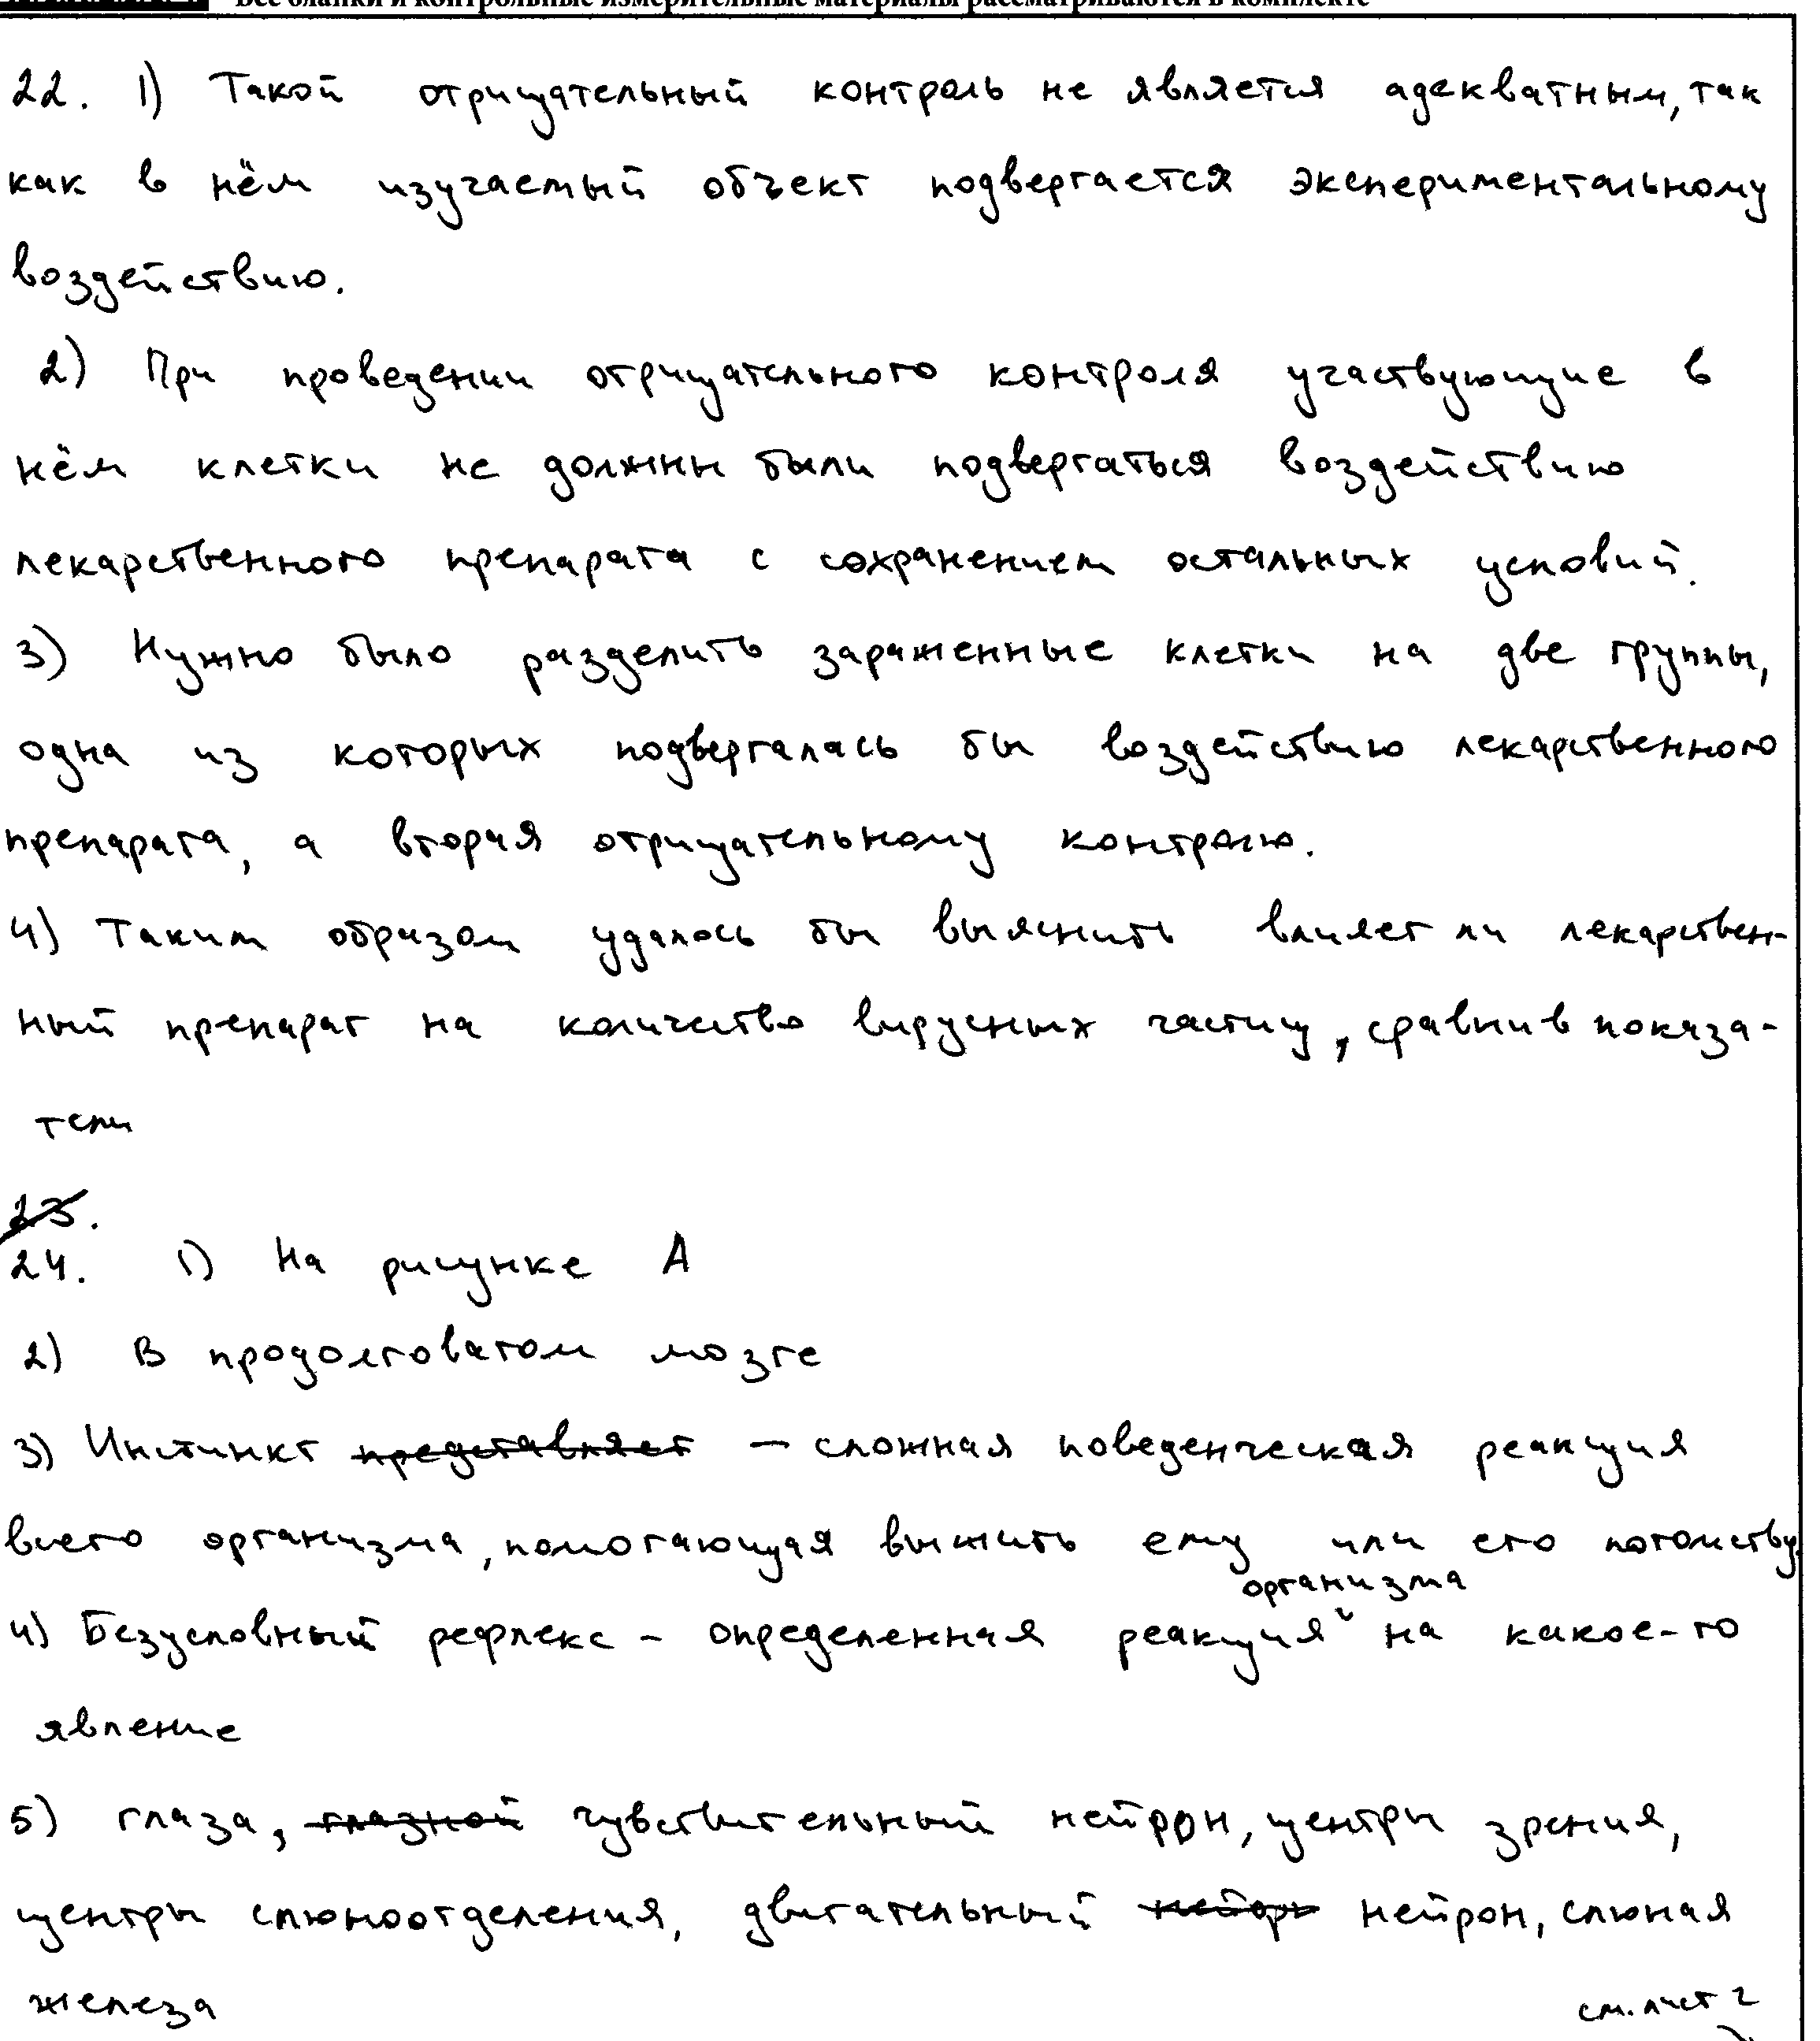 Все бланки и контрольные измерительные материалы рассматриваются в комплекте
22. 1) Такой отрицательный контроль не является адекватным, так
как в нём изучаемый объект подвергается экспериментальному
воздействию.
2) При проведении отрицательного контроля участвующие в
нём клетки не должны были подвергаться воздействию
лекарственного препарата с сохранением остальных условий.
3) Нужно было разделить зараженные клетки на две группы,
одна из которых подвергалась бы воздействию лекарственного
препарата, а вторая отрицательному контролю.
4) Таким образом удалось бы выяснить влияет ли лекарствен-
ный препарат на количество вирусных частиц, сравнив показа-
тели
23.
24. 1) На рисунке А
2) В продолговатом мозге
3) Инстинкт представляет – сложная поведенческая реакция
всего организма, помогающая выжить ему или его потомству.
организма
4) Безусловный рефлекс – определенная реакция на какое-то
явление
5) глаза, глазной чувствительный нейрон, центры зрения,
центры слюноотделения, двигательный нейорн нейрон, слюная
железа
см. лист 2